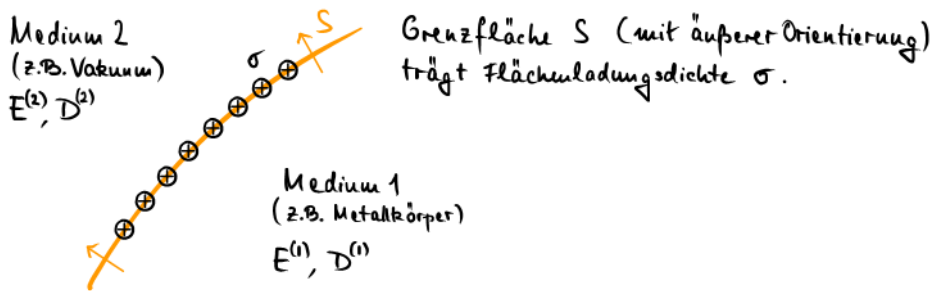 Medium 2
(z.B. Vakuum)
E⁽²⁾, D⁽²⁾
σ
S
Grenzfläche S (mit äußerer Orientierung)
trägt Flächenladungsdichte σ.
Medium 1
(z.B. Metallkörper)
E⁽¹⁾, D⁽¹⁾